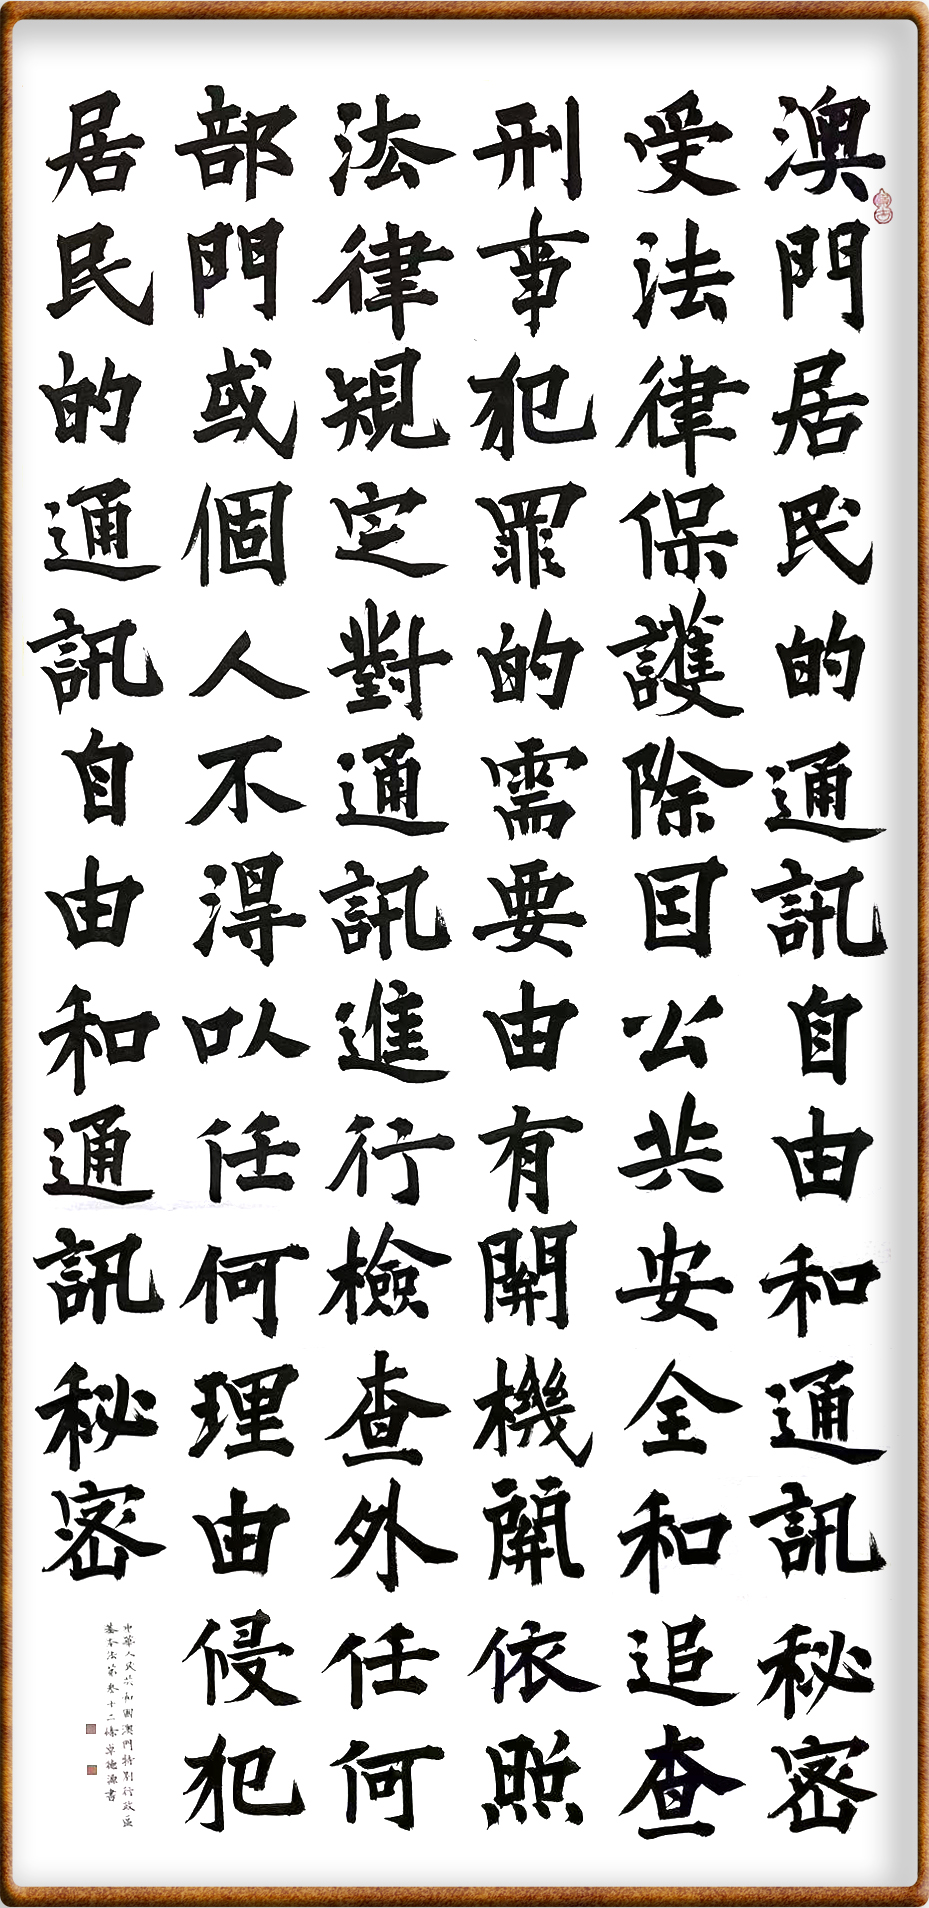 澳門居民的通訊自由和通訊秘密
受法律保護除因公共安全和追查
刑事犯罪的需要由有關機關依照
法律規定對通訊進行檢查外任何
部門或個人不得以任何理由侵犯
居民的通訊自由和通訊秘密
中華人民共和國澳門特別行政區
基本法第叁十二條 書